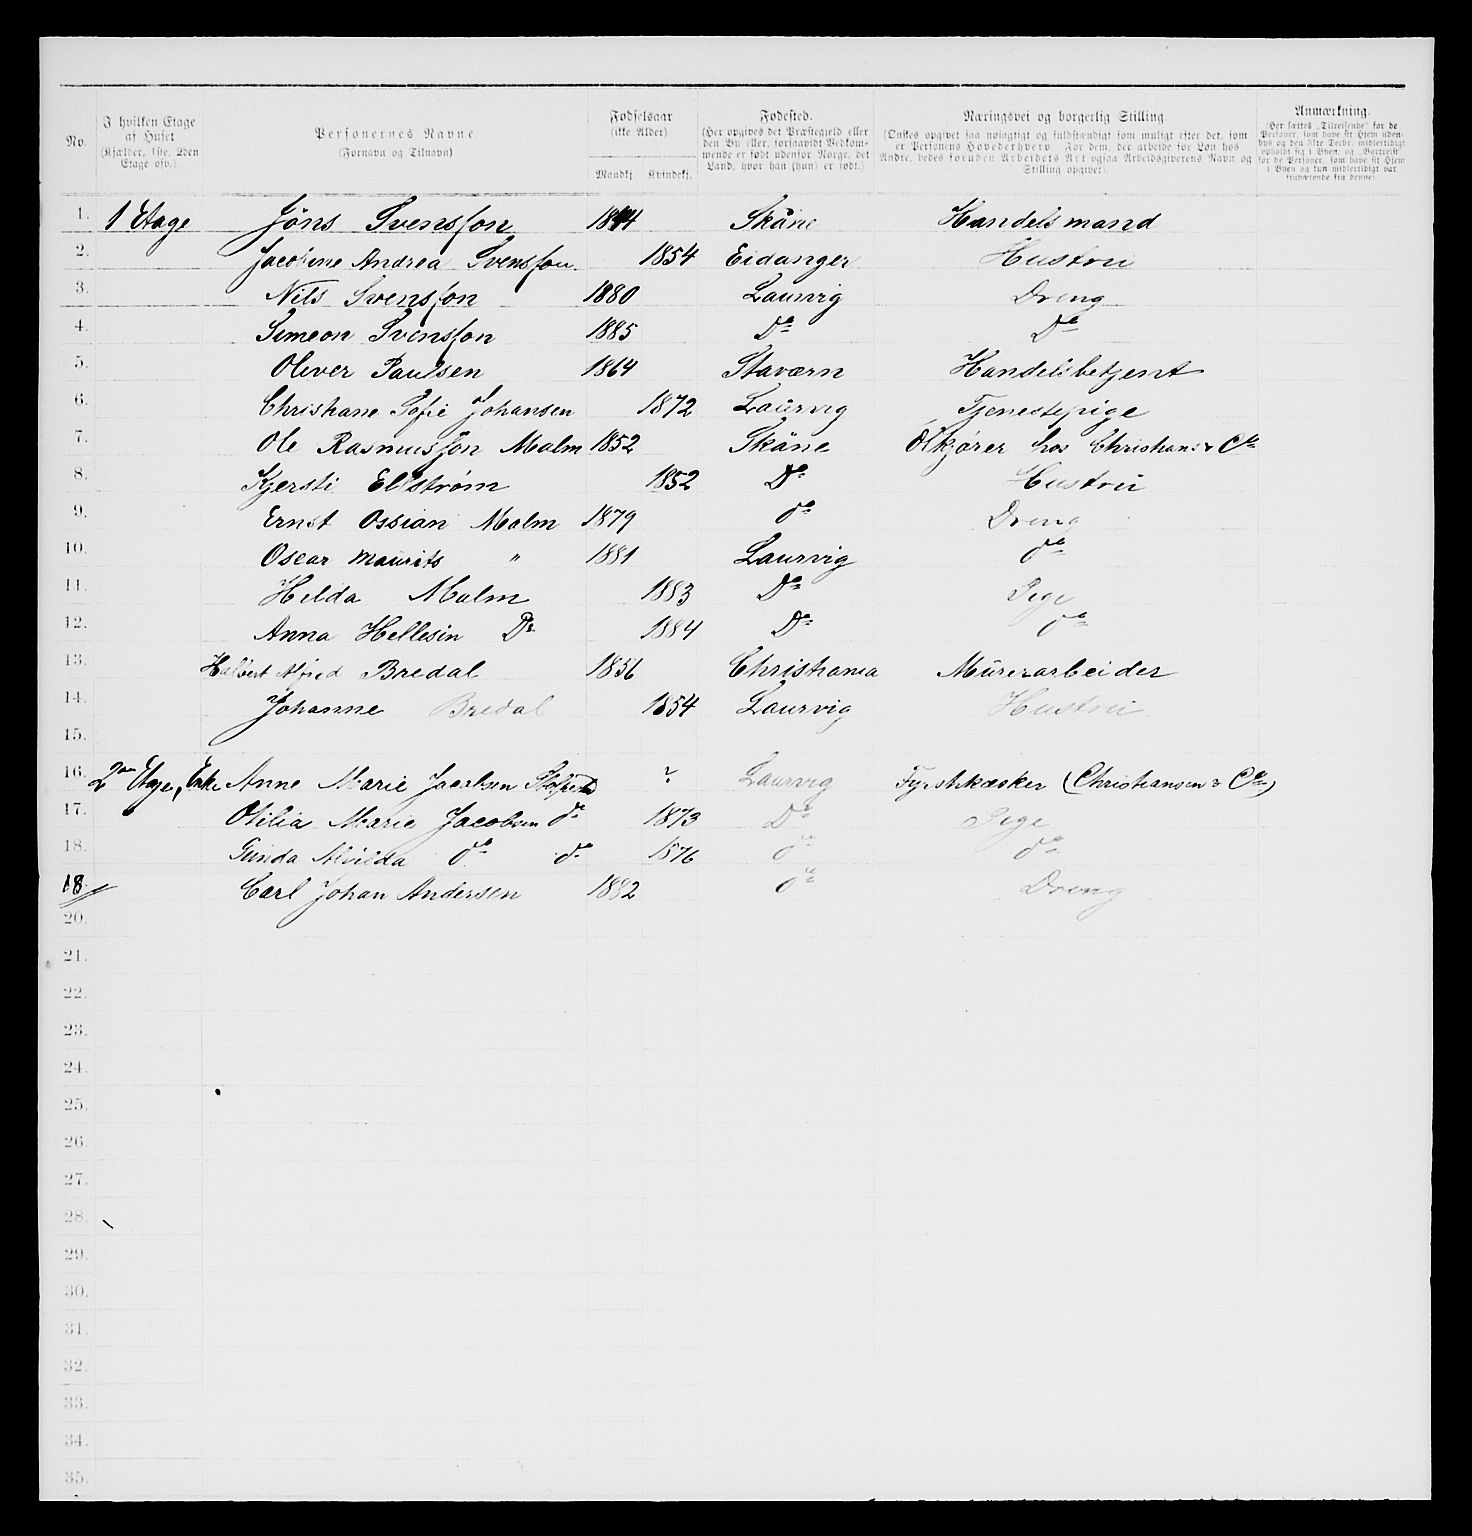 No.
I hvilken Etage af Huset (Kjælder, 1ste, 2den Etage osv.)
Personernes Navne. (Fornavn og Tilnavn)
Fødselsaar (ikke Alder) Mandkj. Kvindekj.
Fødested. (Her opgives det Præstegjeld eller den By eller, forsaavidt Vedkommende er født udenfor Norge, det Land, hvor han (hun) er født.)
Næringsvei og borgerlig Stilling. (Ønskes opgivet saa nøiagtigt og fuldstændigt som muligt efter det, som er Personens Hovederhverv. For dem, der arbeide for Løn hos Andre, bedes foruden Arbeidets Art ogsaa Arbeidsgiverens Navn og Stilling opgivet).
Anmærkning. (Her sættes „Tilreisende“ for de Personer, som have sit Hjem udenbys og den 31te Decbr. midlertidigt opholdt sig i Byen, og „Bortreist“ for de Personer, som have sit Hjem i Byen og kun midlertidigt var fraværende fra denne).
1. 1 Etage Jöns Svensson 1844 Skåne Handelsmand
2. Jacobine Andrea Svensson. 1854 Eidanger Hustru
3. Nils Svensson 1880 Laurvig Dreng
4. Simeon Svensson 1885 Do Do
5. Oliver Paulsen 1864 Staværn Handelsbetjent
6. Christiane Sofie Johansen 1872 Laurvig Tjenestepige
7. Ole Rasmusson Malm 1852 Skåne Ølkjører hos Christians & Co
8. Kjersti Ellstrøm 1852 Do Hustru
9. Ernst Ossian Malm 1879 do Dreng
10. Oscar Maurits " 1881 Laurvig do
11. Helda Malm 1883 Do Pige
12. Anna Hellesin Do 1884 Do do
13. Halbert Alfred Bredal 1856 Christiania Murerarbeider
14. Johanne Bredal 1854 Laurvig Hustru
15.
16. 2den Etage, Enke Anne Marie Jacobsen ? Laurvig Fyrstikæsker (Christiansen & Co)
17. Otilia Marie Jacobsen do 1873 Do Pige
18. Gunda Alvilda do do 1876 do do
18. Carl Johan Andersen 1882 do Dreng
20.
21.
22.
23.
24.
25.
26.
27.
28.
29.
30.
31.
32.
33.
34.
35.